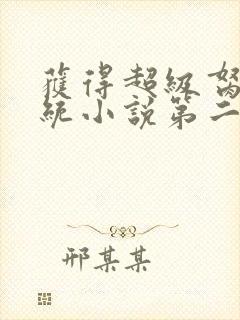 獲得超級
統小說第二
邢某某